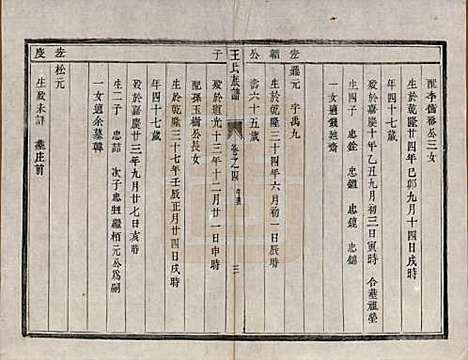 配李儒裕公三女
生於乾隆廿四年己卯九月十四日戌時
歿於嘉慶十年乙丑九月初三日寅時 合葬祖塋
年四十七歲
生四子 忠銓 忠鐘 忠鎰 忠錦
一女適錢姓
岩 鼎元 字禹九
公
生於乾隆三十四年六月初一日辰時
壽六十五歲
王氏家譜
卷之四 三
歿於道光十三年十二月初一日申時
于
配孫玉樹公長女
生於乾隆三十七年壬辰正月廿四日戌時
歿於嘉慶廿三年九月廿七日亥時
年四十七歲
生二子 忠喆 次子忠 繼栢元公為嗣
一女適余
岩 松元
度
生歿未詳 葬庄前